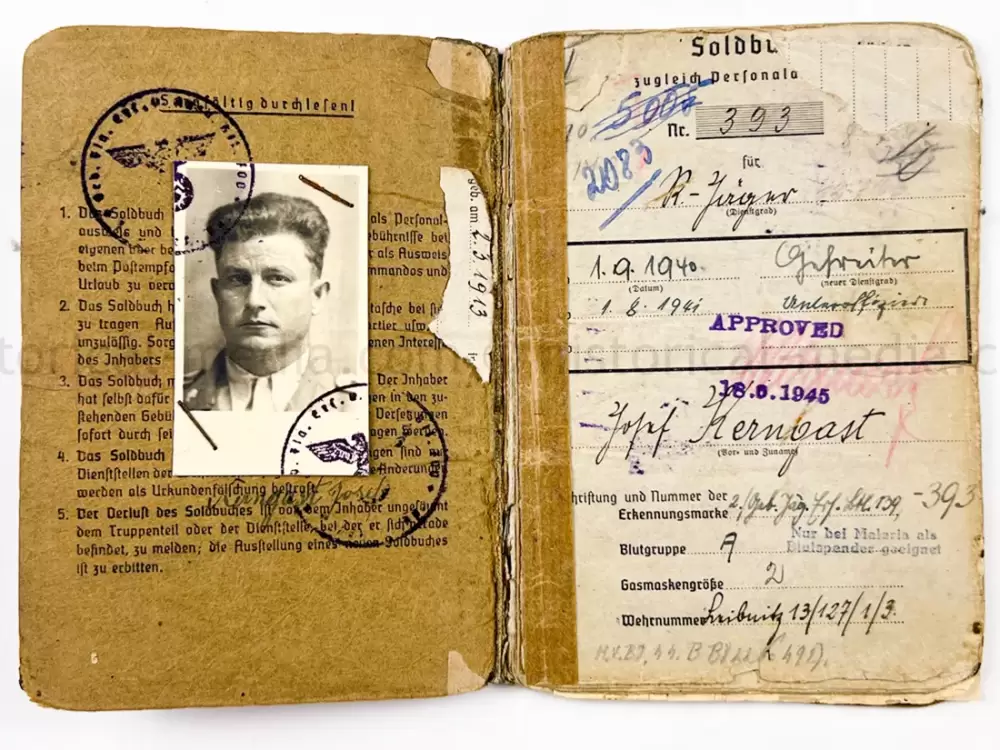 Sorgfältig durchlesen!
1. Das Soldbuch als Personal-
ausweis und bührnisse bei
eigenen oder r als Ausweis
beim Postempfa mmandos und
Urlaub zu
2. Das Soldbuch tasche bei si
zu tragen Auf usw
unzulässig. Sorg enen Interesse
des Inhabers
3. Das Soldbuch Der Inhaber
hat selbst dafür en in den zu-
stehenden Gebü Versetzungen
sofort durch sei agen werden.
4. Das Soldbuch gen sind
Dienststellen der Änderungen
werden als Urkundenfälschung bestraft.
5. Der Verlust des Soldbuches ist von dem Inhaber ungesäumt
dem Truppenteil oder der Dienststelle, bei der er sich gerade
befindet, zu melden; die Ausstellung eines neuen Soldbuches
ist zu erbitten.
Kerngast Josef
geb. am 2.3.1913
Soldbu
zugleich Persona
5005
Nr. 393
2083
für
K-Jäger
(Dienstgrad)
1.9.1940. Gefreiter
(Datum) (neuer Dienstgrad)
1.8.1941 Unteroffizier
APPROVED
18.6.1945
Josef Kerngast
(Vor- und Zuname)
chriftung und Nummer der
Erkennungsmarke 2./Geb. Jäg. Ers. Btl. 139, -393
Blutgruppe A
Nur bei Malaria als
Blutspender geeignet
Gasmaskengröße 2
Wehrnummer Leibnitz 13/127/1/3.